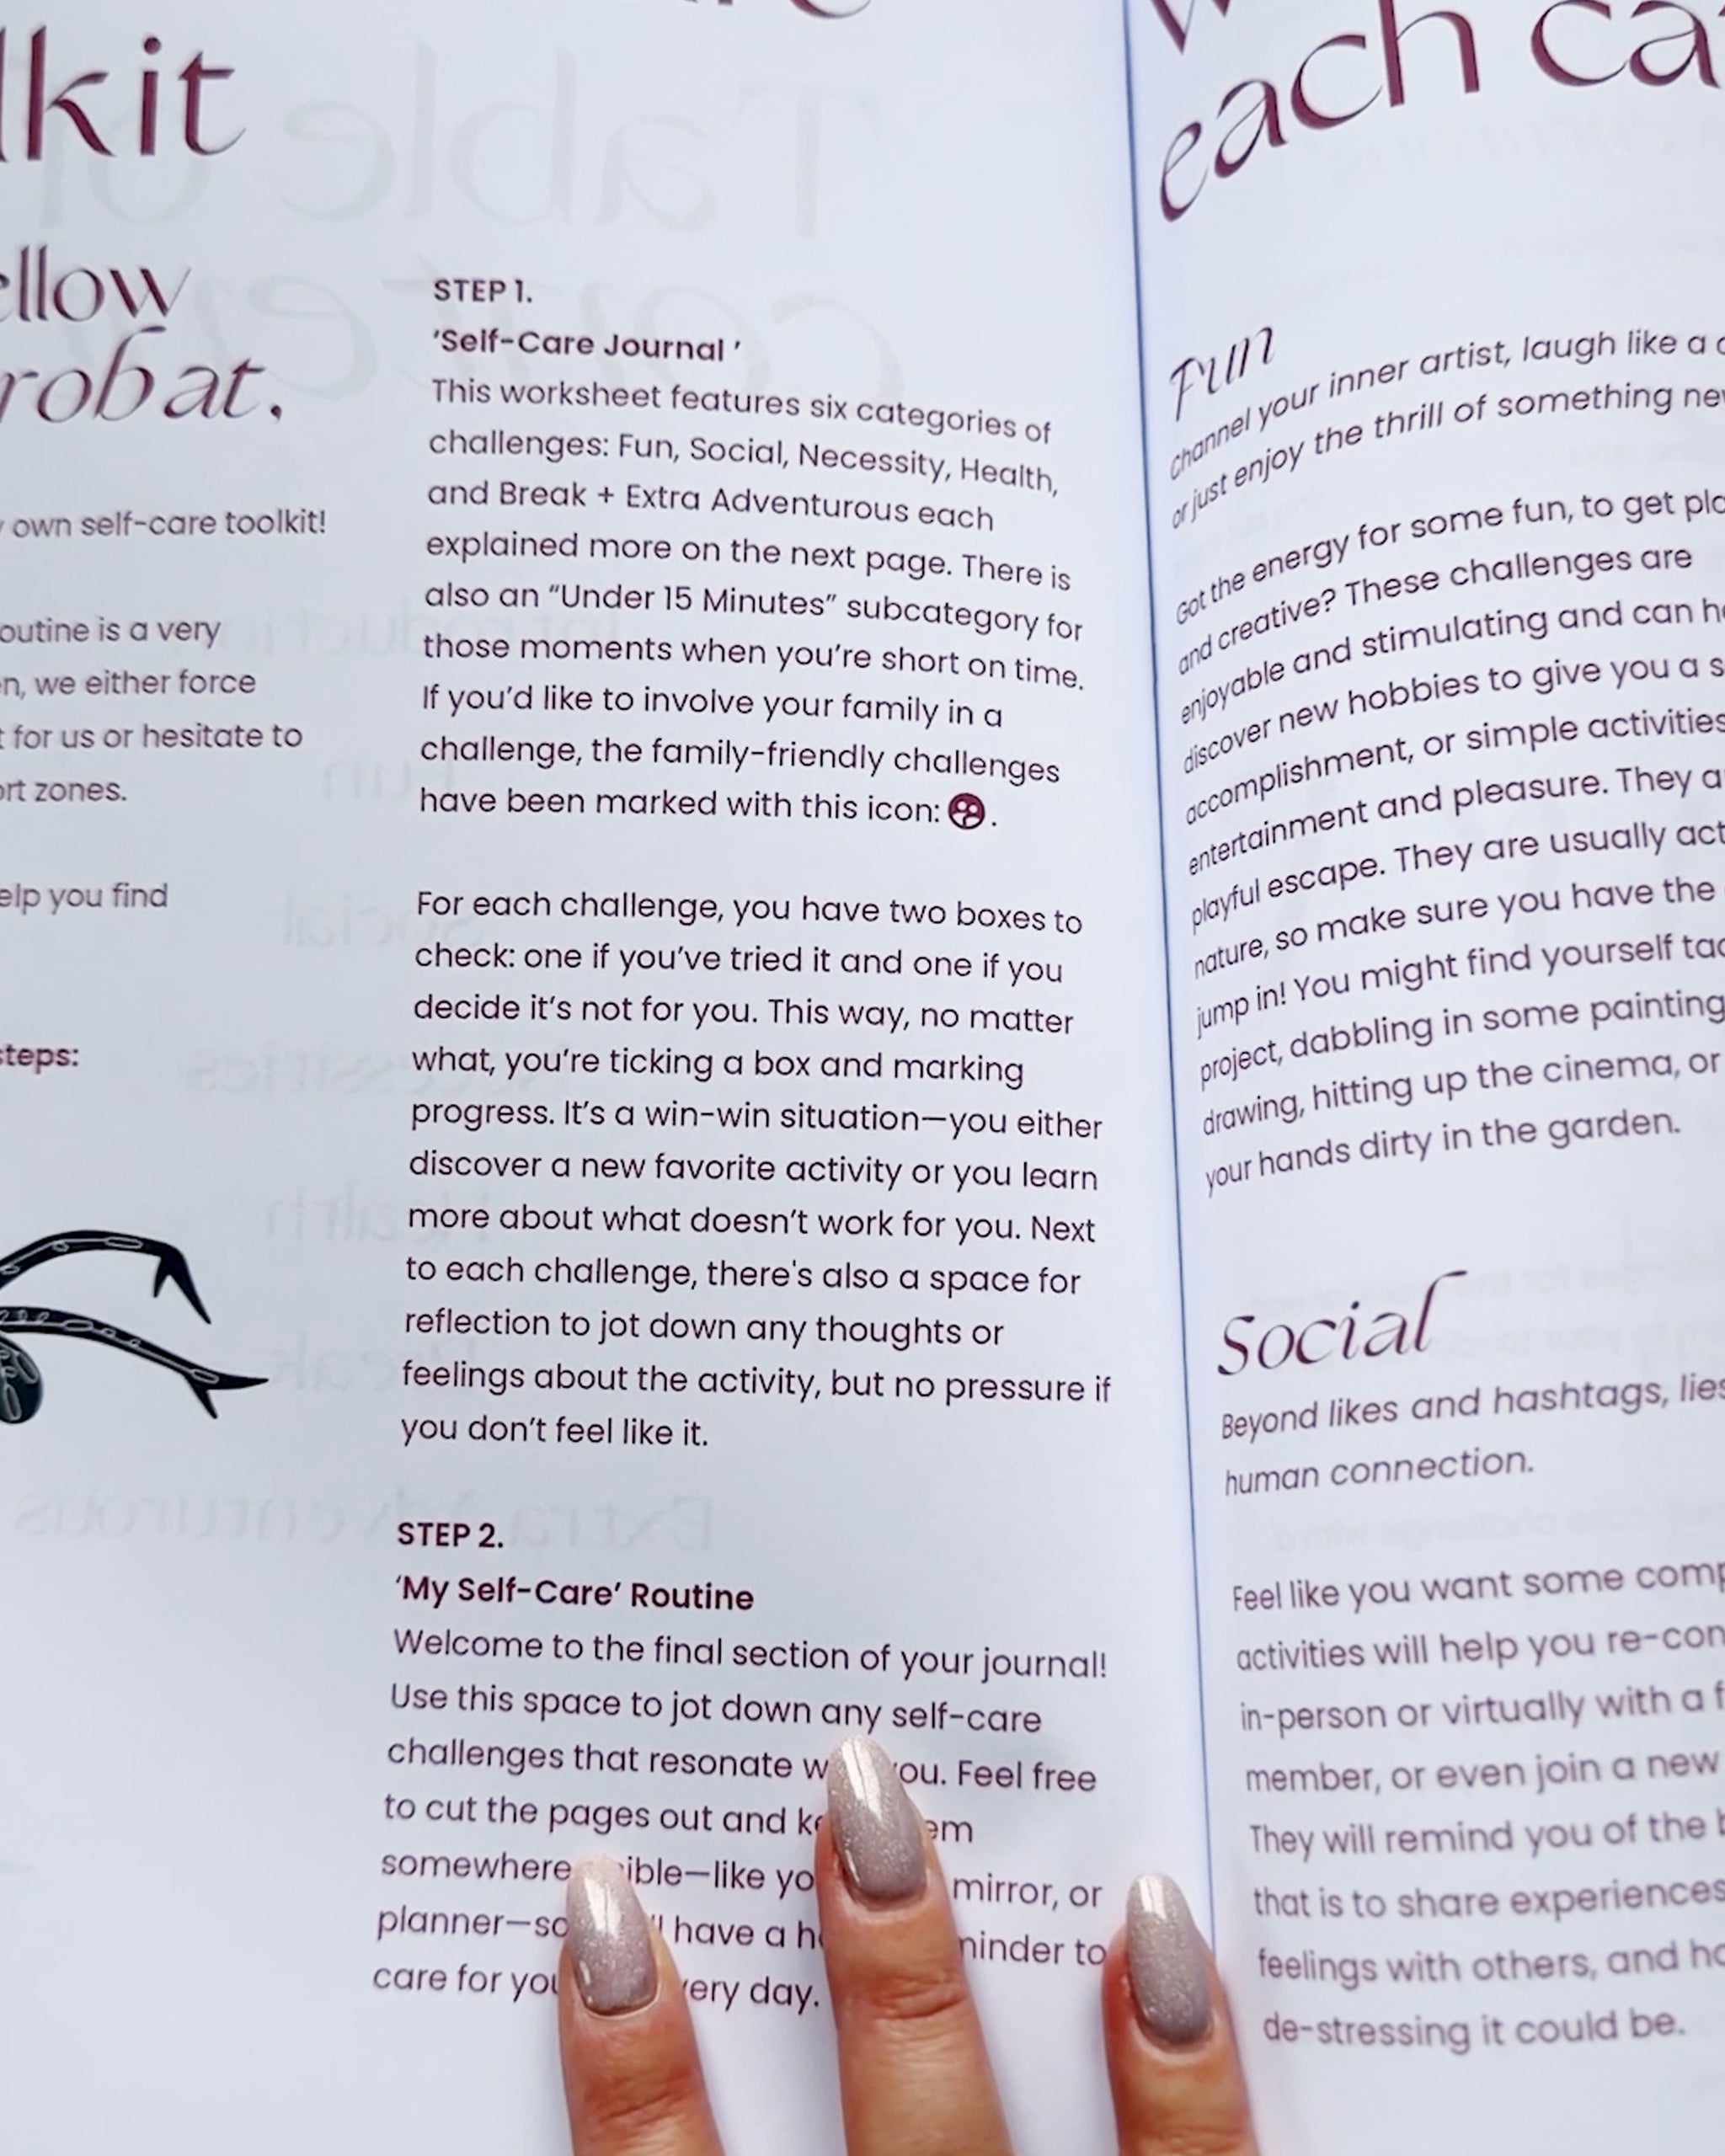 kit
ellow
robat.
own self-care toolkit!
outine is a very
we either force
for us or hesitate to
zones.
you find
steps:
STEP 1.
'Self-Care Journal '
This worksheet features six categories of
challenges: Fun, Social, Necessity, Health,
and Break + Extra Adventurous each
explained more on the next page. There is
also an “Under 15 Minutes” subcategory for
those moments when you’re short on time.
If you’d like to involve your family in a
challenge, the family-friendly challenges
have been marked with this icon: .
For each challenge, you have two boxes to
check: one if you’ve tried it and one if you
decide it’s not for you. This way, no matter
what, you’re ticking a box and marking
progress. It’s a win-win situation—you either
discover a new favorite activity or you learn
more about what doesn’t work for you. Next
to each challenge, there's also a space for
reflection to jot down any thoughts or
feelings about the activity, but no pressure if
you don’t feel like it.
STEP 2.
‘My Self-Care’ Routine
Welcome to the final section of your journal!
Use this space to jot down any self-care
challenges that resonate you. Feel free
to cut the pages out and
somewhere —like mirror, or
planner— have a to
care for day.
each
Fun
Channel your inner artist, laugh like a
or just enjoy the thrill of something
Got the energy for some fun, to get
and creative? These challenges are
enjoyable and stimulating and can
discover new hobbies to give you a
accomplishment, or simple activities
entertainment and pleasure. They
playful escape. They are usually
nature, so make sure you have the
jump in! You might find yourself
project, dabbling in some painting
drawing, hitting up the cinema, or
your hands dirty in the garden.
Social
Beyond likes and hashtags, lies
human connection.
Feel like you want some
activities will help you
in-person or virtually with a
member, or even join a new
They will remind you of the
that is to share experiences
feelings with others, and
de-stressing it could be.